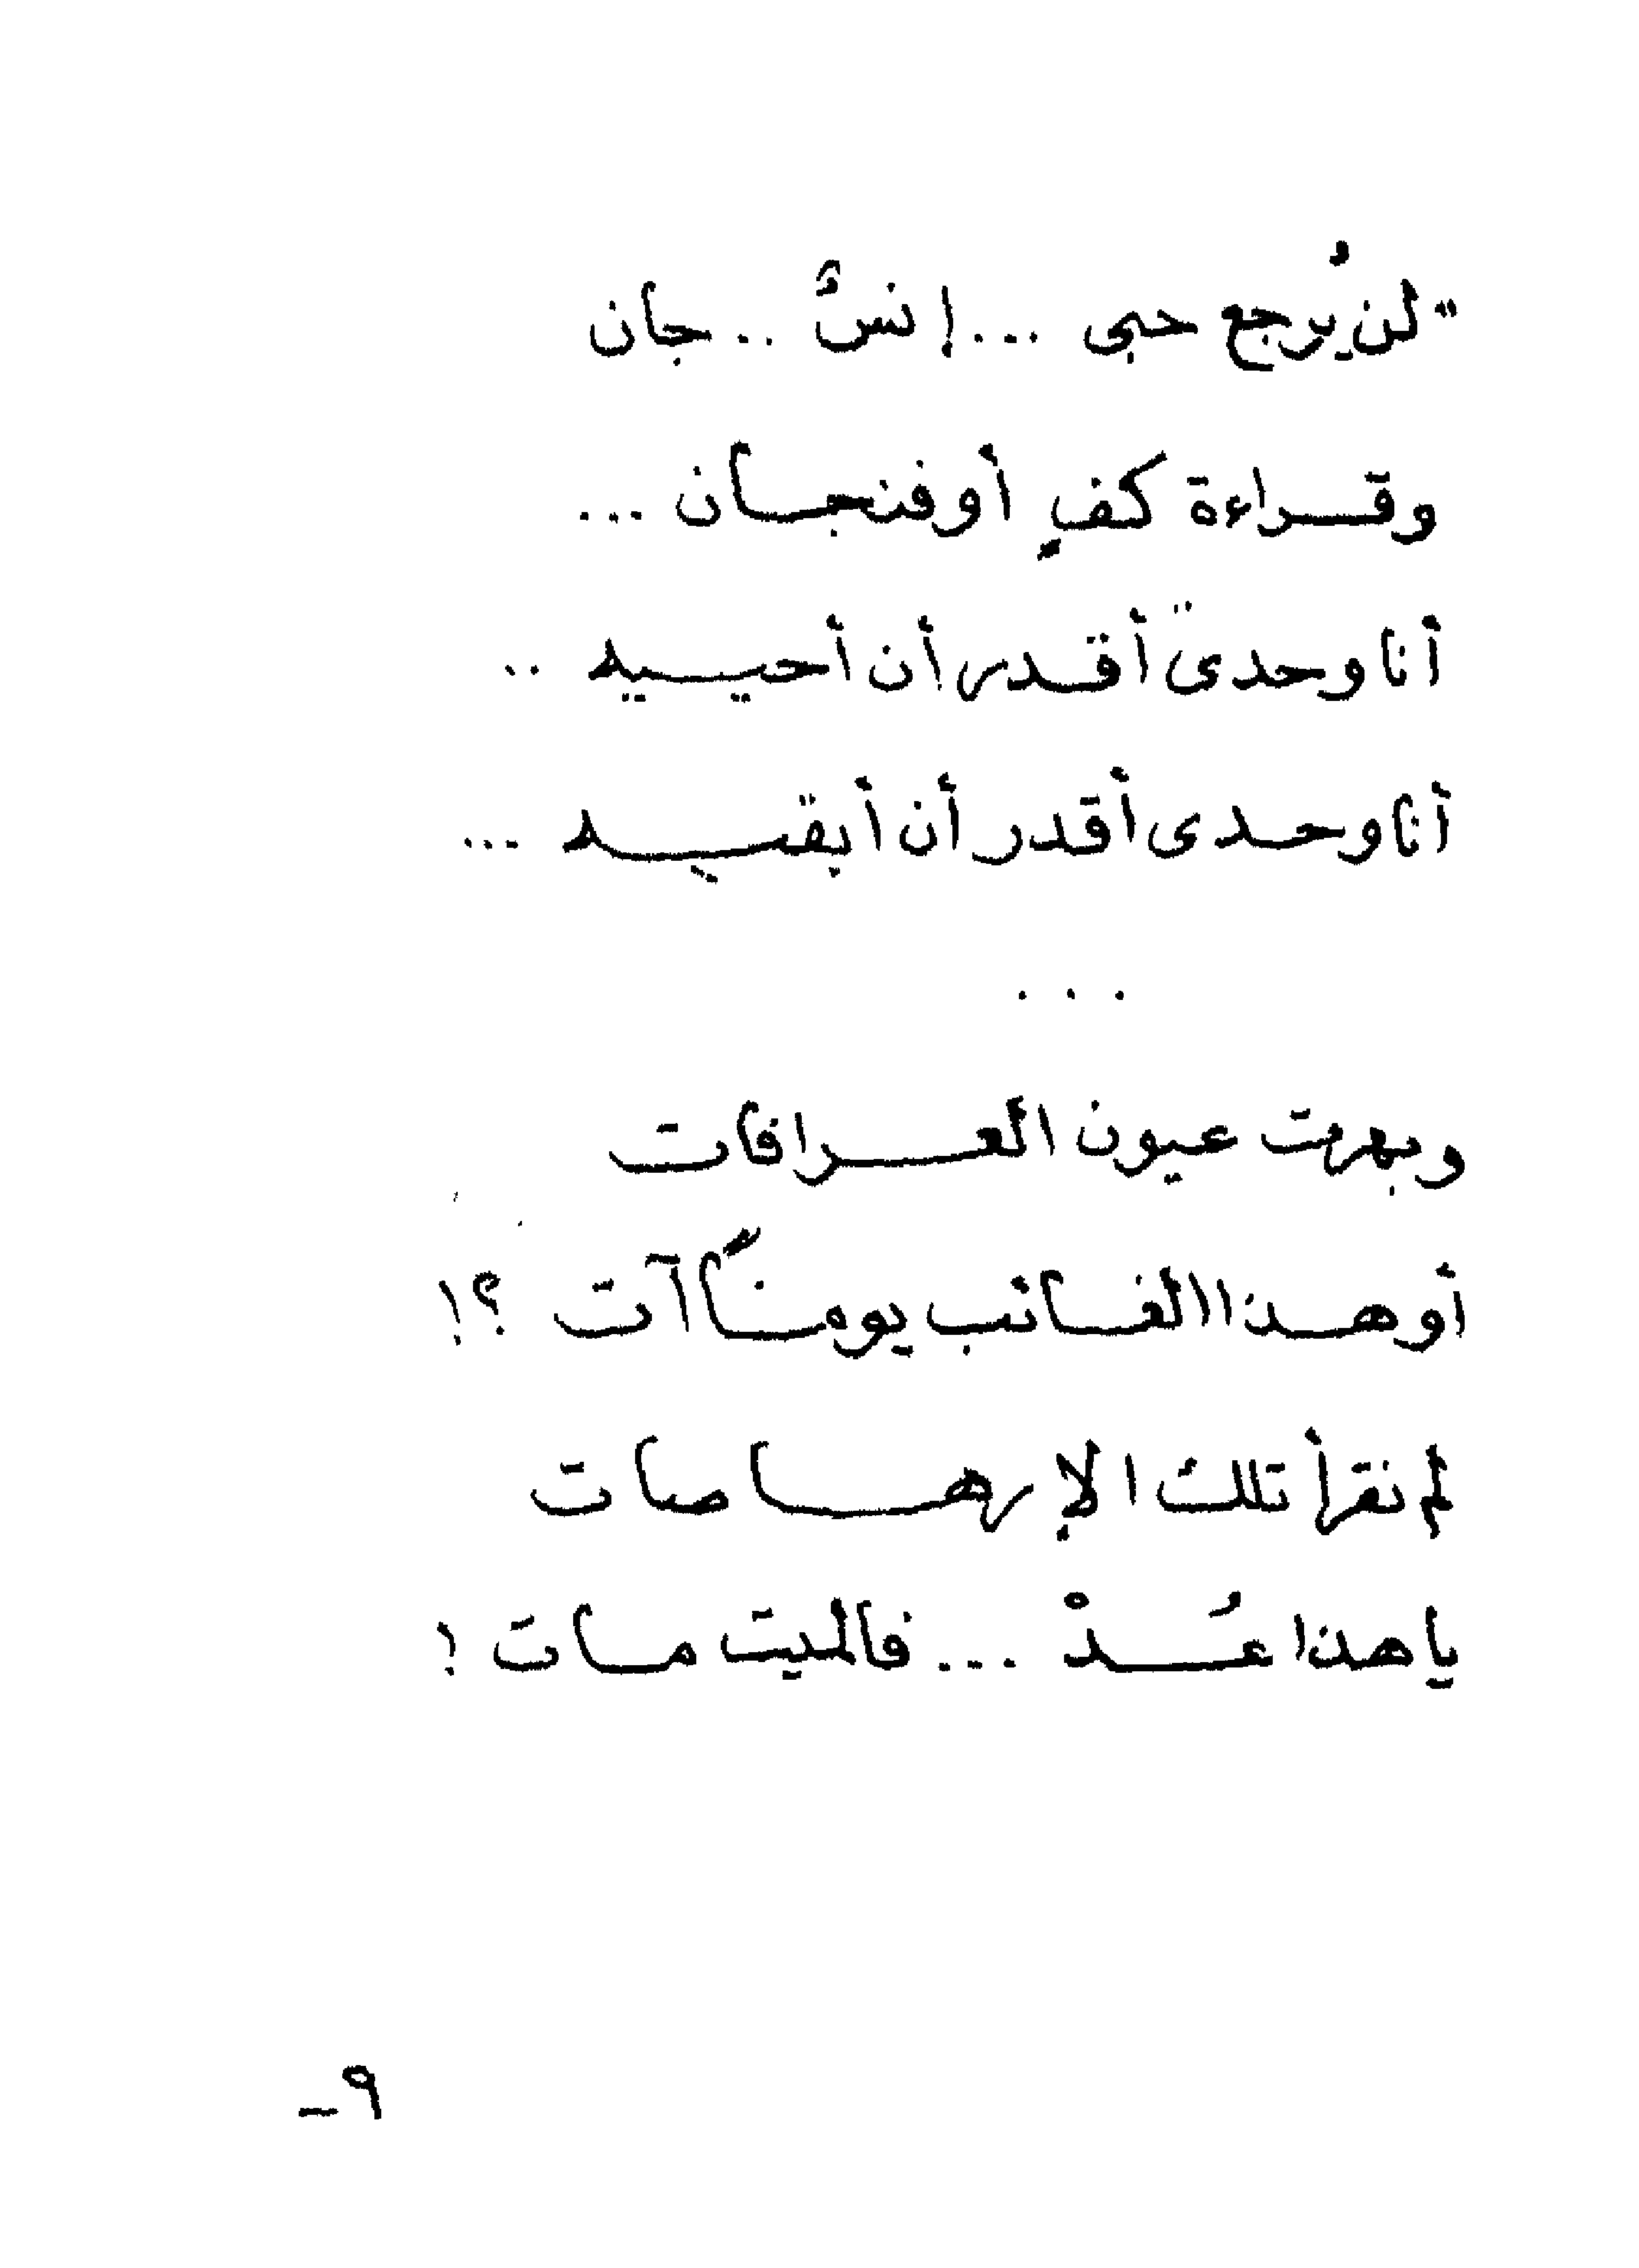 " لن يُرجع حبى ... إنسٌ .. جان
وقراءة كفٍ أو فنجان ...
أنا وحدى أقدر أن أحييه ..
أنا وحدى أقدر أن أبقيه ...
. . .
وبهرت عيون العرافات
أو هذا الغائب يومًا آت ؟!
لم نقرأ تلك الإرهاصات
يا هذا عُدْ ... فالميت مات !
٩ -